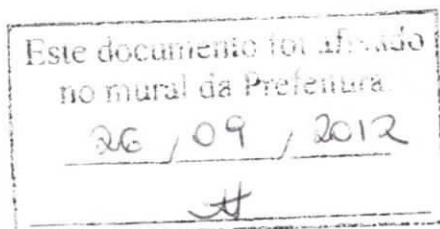 Este documento foi afixado
no mural da Prefeitura.
26 / 09 / 2012